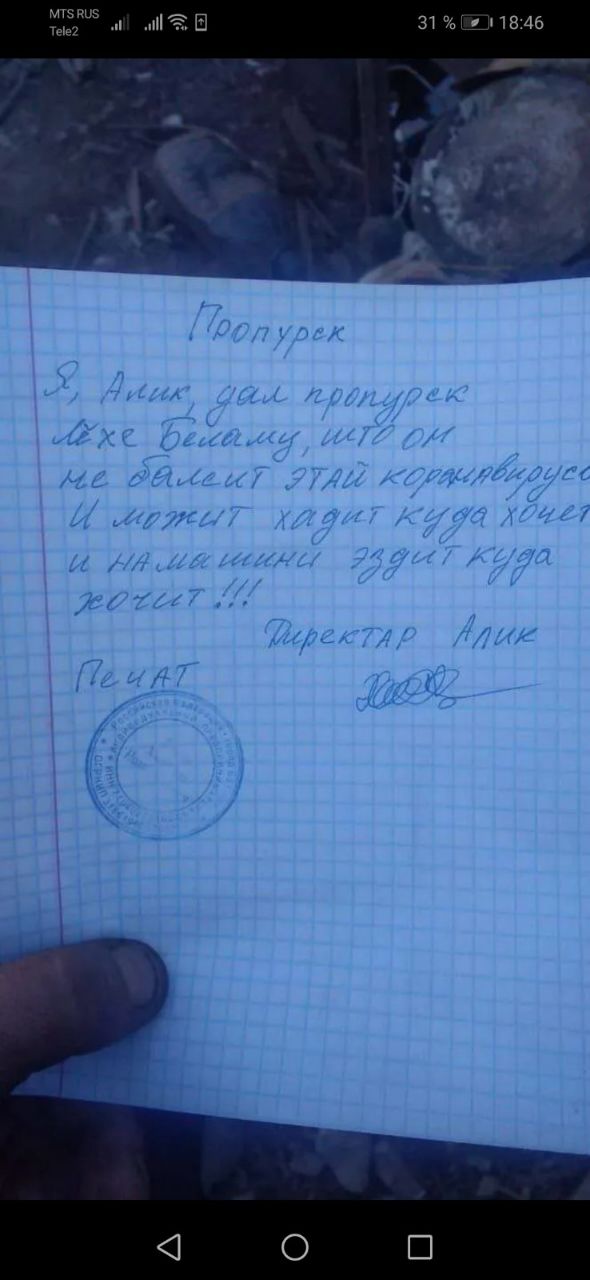 MTS RUS
Tele2
31 % 18:46
Пропурск
Я, Алик, дал пропурск
Лёхе Беламу, што он
не балеит этай коронавирусо
И можит хадит куда хочет
и на машини эздит куда
хочит!!!
Директар Алик
Печат